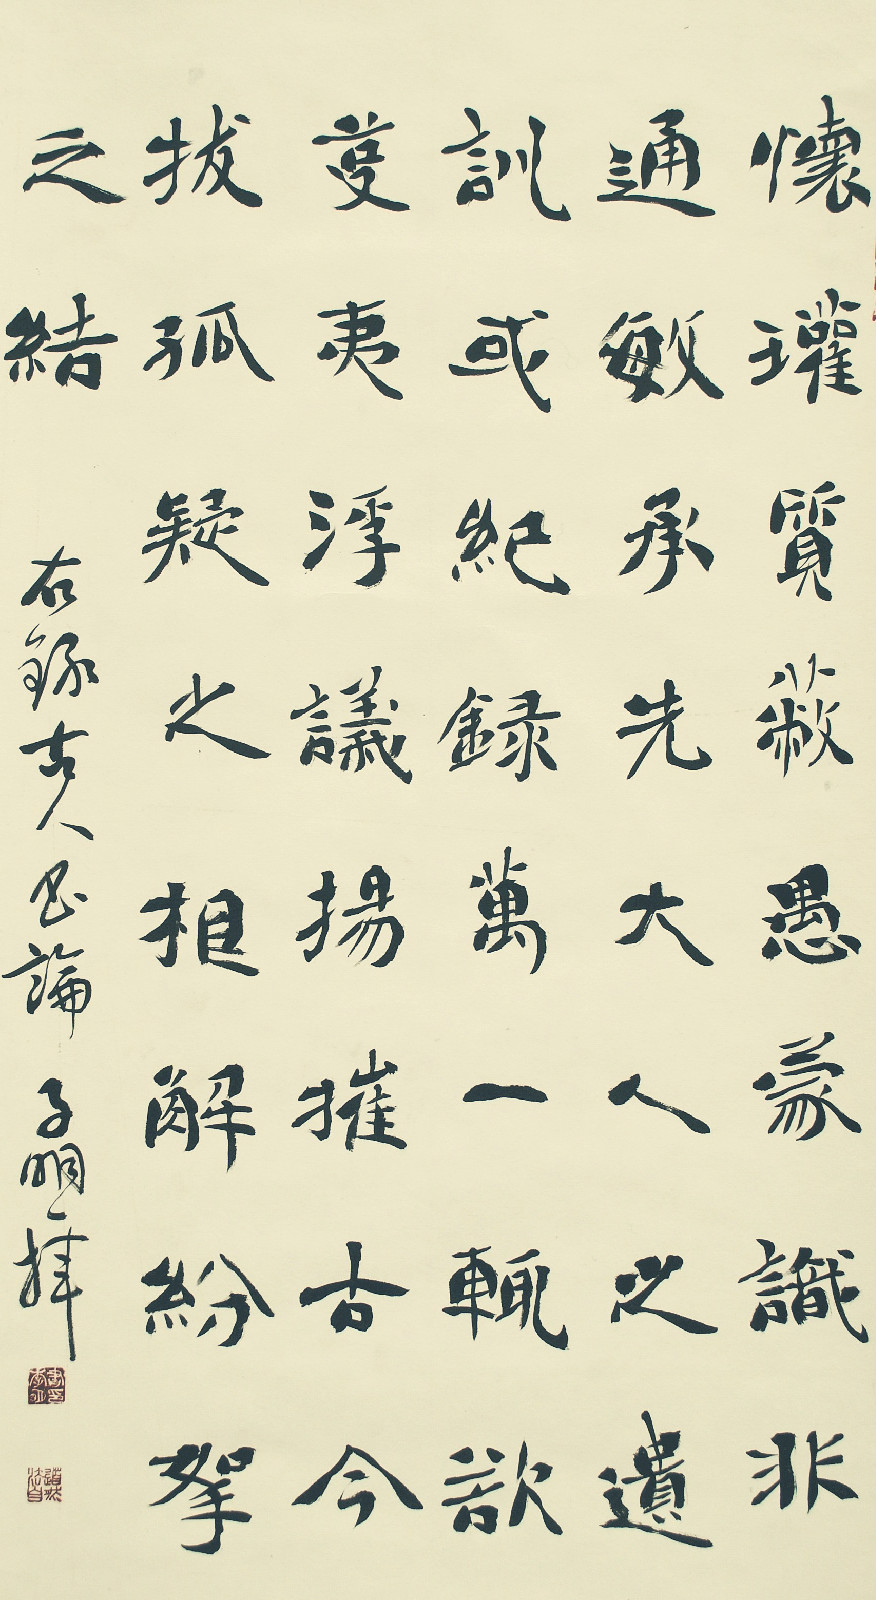 懷瓘質蔽愚蒙識非
通敏承先大人之遺
訓或紀錄萬一輒欲
芟夷浮議揚摧古今
拔孤疑之相解紛拏
之結
右錄古人書論 子明拜